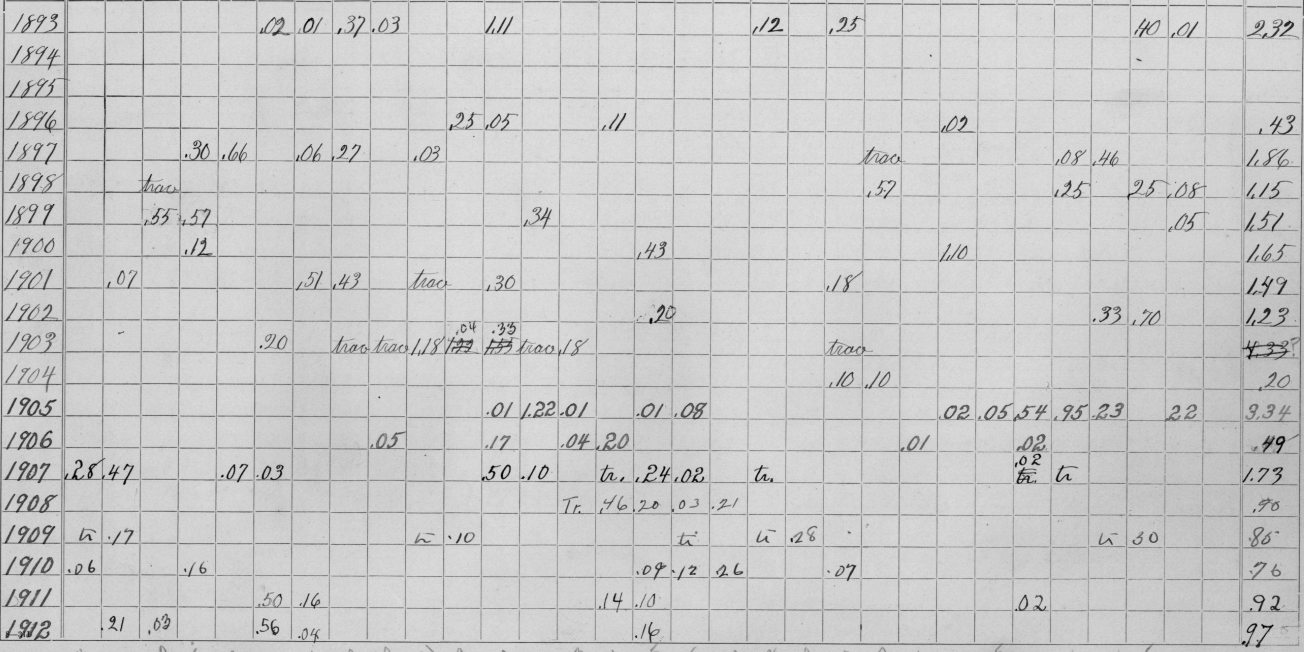 1893 .02 .01 .37 .03 1.11 .12 .25 .40 .01 2.32
1894
1895
1896 .25 .05 .11 .02 .43
1897 .30 .66 .06 .27 .03 trace .08 .46 1.86
1898 trace .57 .25 .25 .08 1.15
1899 .55 .57 .34 .05 1.51
1900 .12 .43 1.10 1.65
1901 .07 .51 .43 trace .30 .18 1.49
1902 .20 .33 .70 1.23
.04 .33
1903 .20 trace trace 1.18 1.22 1.55 trace .18 trace 4.33?
1904 .10 .10 .20
1905 .01 1.22 .01 .01 .08 .02 .05 .54 .95 .23 .22 3.34
1906 .05 .17 .04 .20 .01 .02 .49
.02
1907 .28 .47 .07 .03 .50 .10 tr. .24 .02 tr. tr. tr 1.73
1908 Tr. .46 .20 .03 .21 .90
1909 tr .17 tr .10 tr tr .28 tr 30 .85
1910 .06 .16 .09 .12 .26 .07 .76
1911 .50 .16 .14 .10 .02 .92
1912 .21 .03 .56 .04 .16 .97